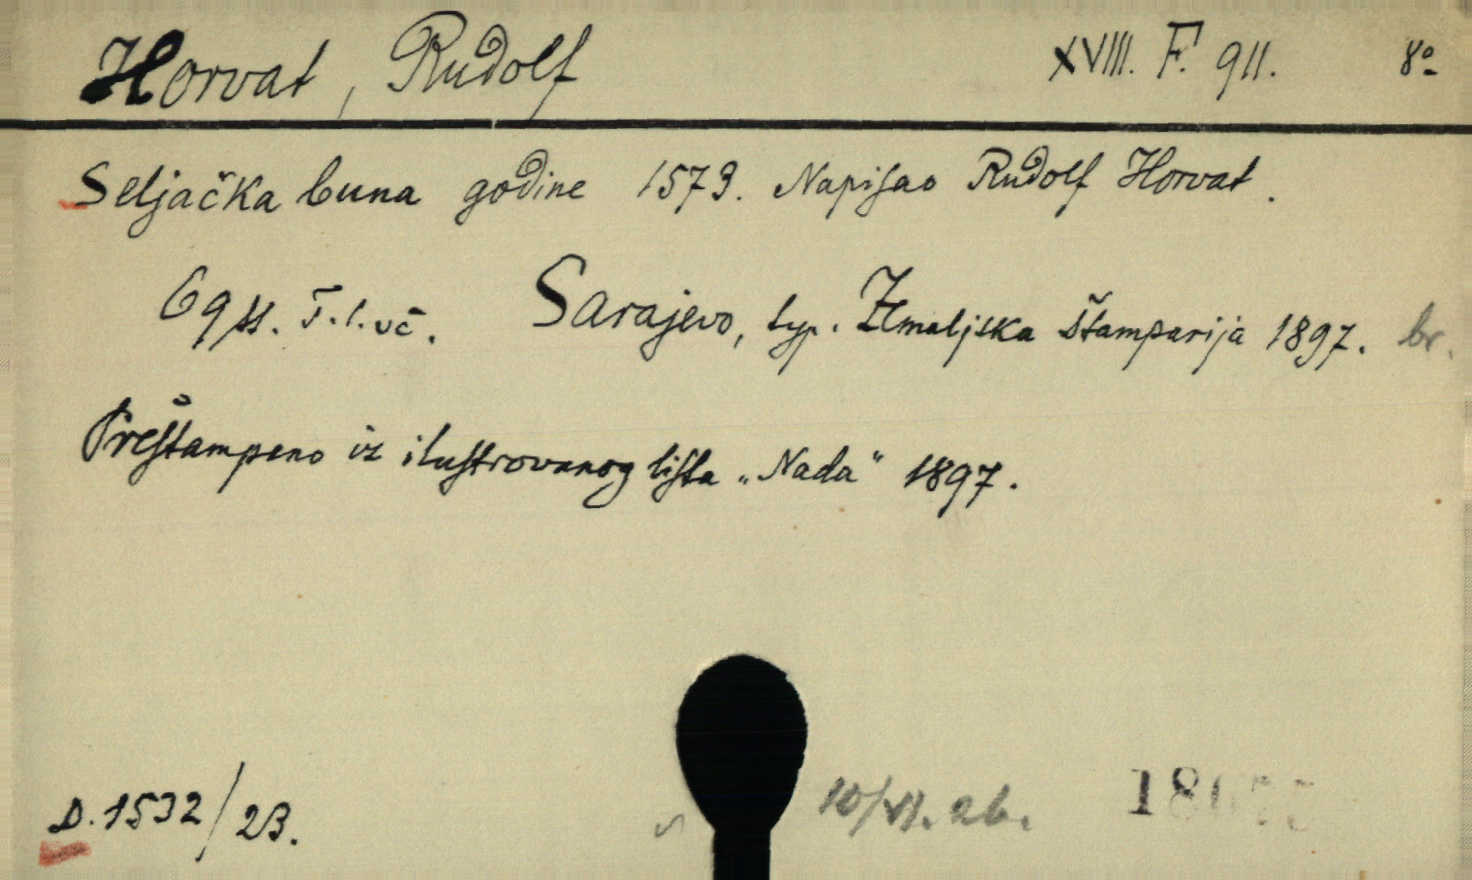 Horvat, Rudolf XVIII. F. 911. 8º
Seljačka buna godine 1573. Napisao Rudolf Horvat.
69 st. F. l. vč. Sarajevo, typ. Zemaljska štamparija 1897. br.
Preštampano iz ilustrovanog lista „Nada" 1897.
D. 1532/23. 10/VI. 26.